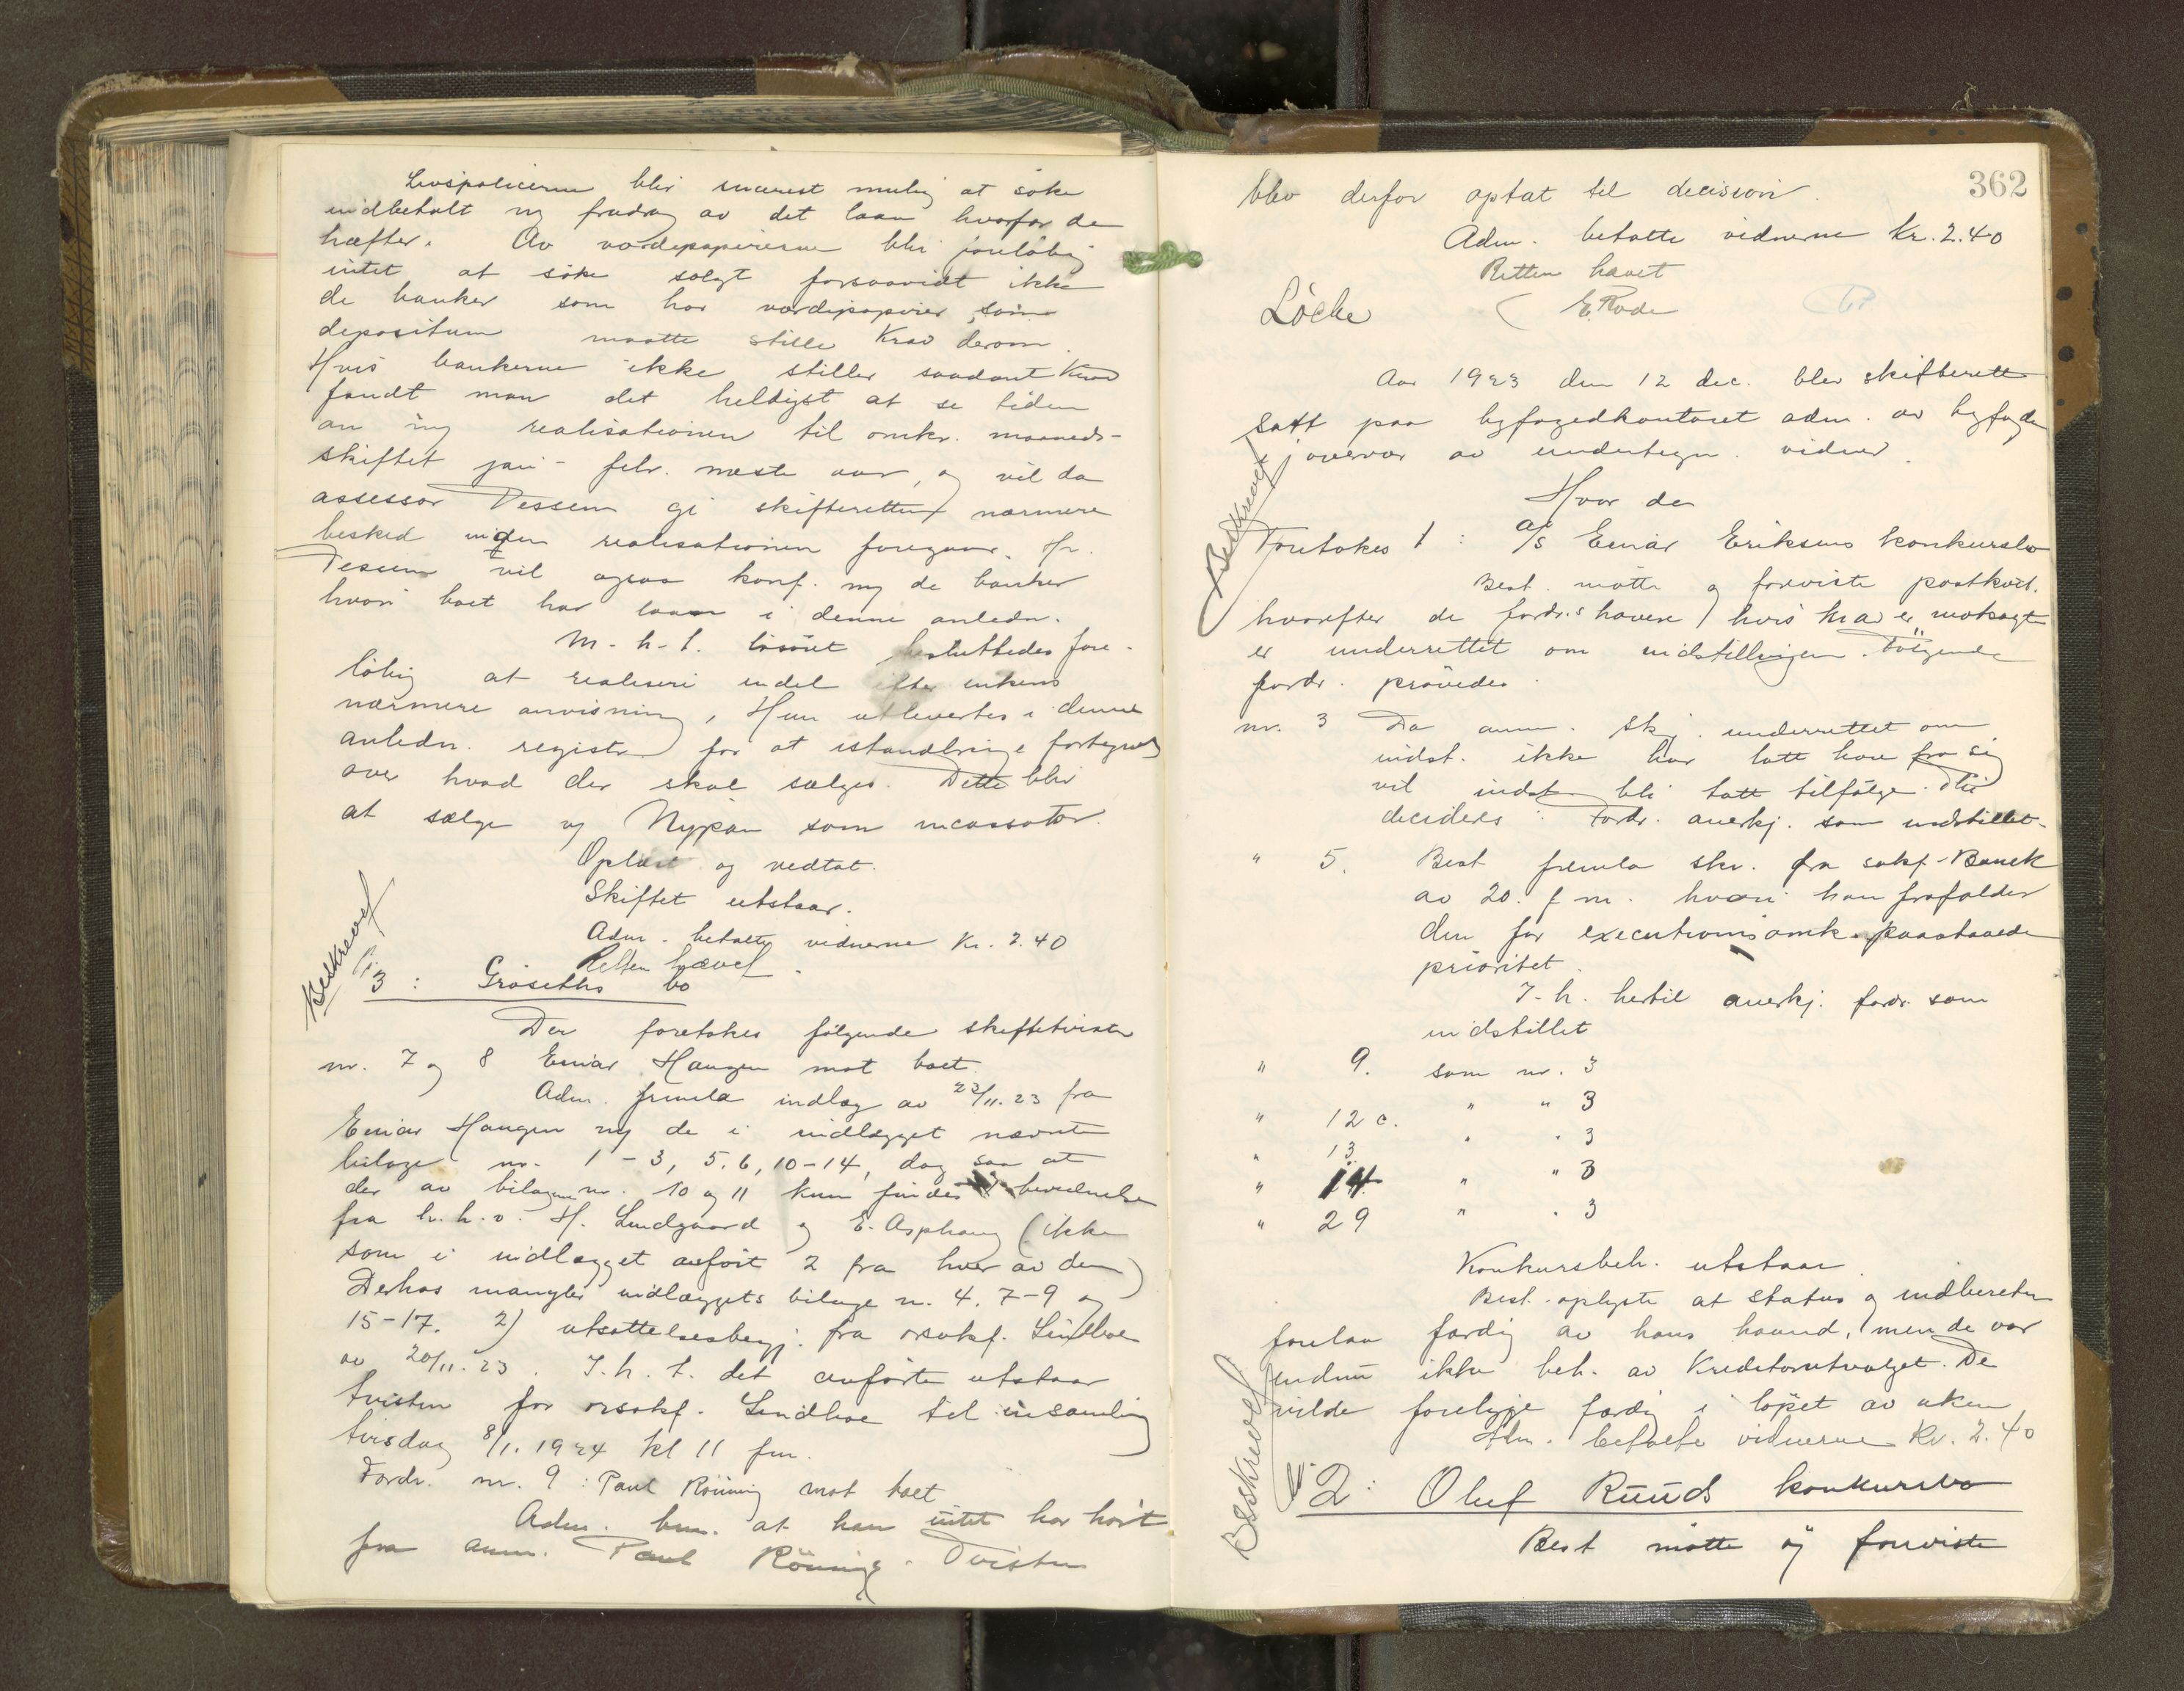 Livspolicerne blir snarest mulig at söke
indbetalt m/ fradrag av det laan hvorfor de
hæfter. Av værdipapirerne blir foreløbig
intet at söke solgt forsaavidt ikke
de banker som har værdipapirer som
depositum maatte stille Krav derom.
Hvis bankerne ikke stiller saadant Krav
fandt man det heldigst at se tiden
an m/ realisationen til omkr. maaneds-
skiftet jan - febr. næste aar, og vil da
assessor Dessen gi skifteretten nærmere
besked inden realisationen foregaar. Hr.
Dessen vil ogsaa konf. m/ de banker
hvori boet har laan i denne anledn.
M. h. t. lösöret besluttedes fore-
löbig at realisere endel efter enkens
nærmere anvisning, Hun utlevertes i denne
anledn. registr. for at istandbringe fortegnelse
over hvad der skal sælges. Dette blir
at sælge v/ Nypan som incassator.
Oplæst og vedtat.
Skiftet utstaar.
Adm. betalte vidnerne Kr. 2.40
Retten hævet.
Beskrevet
3: Gröseths bo
Der foretokes følgende skiftetvister
nr. 7 og 8 Einar Haugen mot boet.
Adm. fremla indlæg av 23/11.23 fra
Einar Haugen m/ de i indlægget nævnte
bilage nr. 1-3, 5.6, 10-14, dog saa at
der av bilagene nr. 10 og 11 kun findes bevidnelse
fra h.h.v. H. Lindgaard og E. Asphaug (ikke
som i indlægget anført 2 fra hver av dem)
Derhos mangler indlæggets bilage nr. 4. 7-9 og
15-17. 2) utsættelsesbegj. fra orsakf. Lindboe
av 20/11.23. I. h. t. det anförte utstaar
tvisten for orsakf. Lindboe til insamling
tirsdag 8/1. 1924 kl 11 fm.
Fordr. nr. 9: Paul Rönning mot boet
Adm. bem. at han intet har hört
fra anm. Paul Rönning. Tvisten
362
blev derfor optat til decision.
Adm. betalte vidnerne Kr. 2.40
Retten hævet
Löcke E. Rode
Aar 1923 den 12 dec. blev skifterett
satt paa byfogedkontoret adm. av byfogden
i overvær av undertegn. vidner.
Hvor da
Beskrevet
Foretokes 1: A/S Einar Eriksens konkursbo
Best. mötte og foreviste postkvit.
hvorefter de fordr.shavere hvis krav er motsagt
er underrettet om indstillingen. Følgende
fordr. prövedes.
nr. 3 Da anm. skj. underrettet om
indst. ikke har latt høre fra sig
vil indst. bli tatt tilfølge. Ti
decideres: Fordr. anerkj. som indstillet.
" 5. Best fremla skr. fra sakf. Banck
av 20. f. m. hvori han frafalder
den for executionsomk. paastaaede
prioritet.
I. h. hertil anerkj. fordr. som
indstillet
" 9. som nr. 3
" 12 c. " " 3
" 13. " " 3
" 14 " " 3
" 29 " " 3
Konkursbeh. utstaar.
Best. oplyste at status og indberetn
forelaa færdig av hans haand, men de var
endnu ikke beh. av Kreditorutvalget. De
vilde foreligge færdig i löpet av uken
Adm. betalte vidnerne Kr. 2.40
Beskrevet
2: Oluf Ruuds konkursbo
Best mötte og foreviste